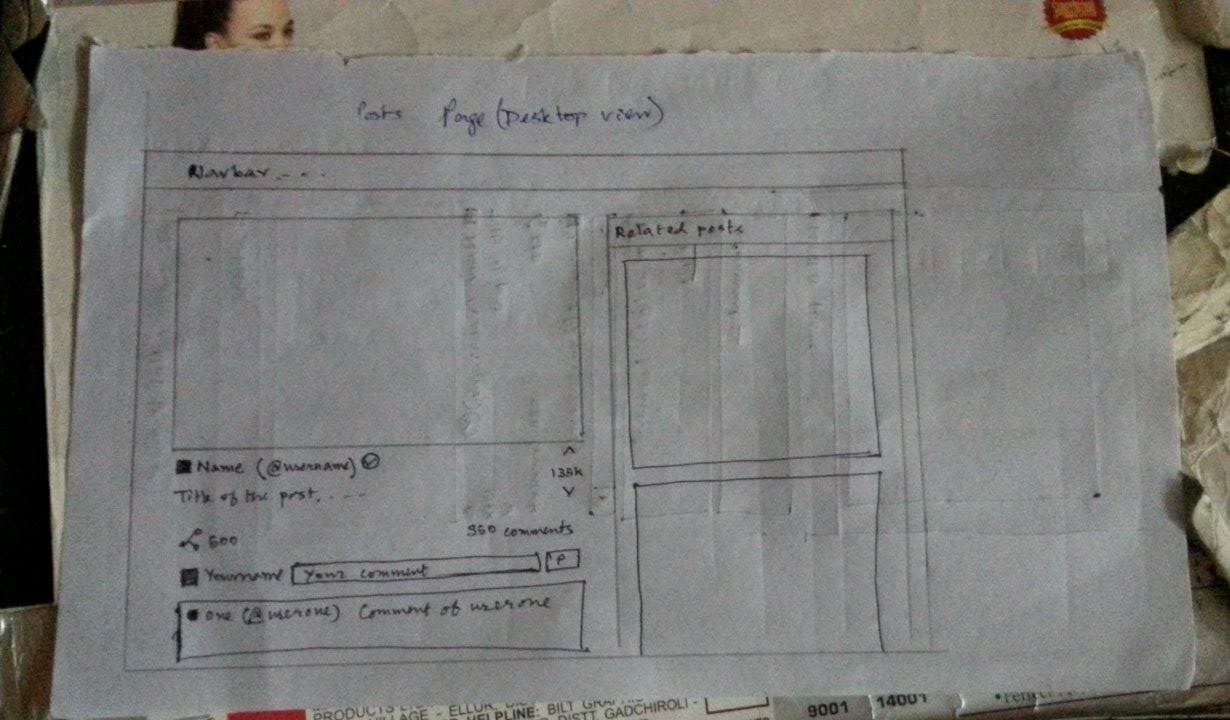 Posts Page (Desktop view)
Navbar - - .
Related posts
Name (@username)
135k
Title of the post, - - -
500
350 comments
Yourname Your comment P
one (@userone) Comment of userone
PRODUCTS
VILLAGE - ELLUR,
HELPLINE: BILT
DISTT GADCHIROLI -
9001
14001